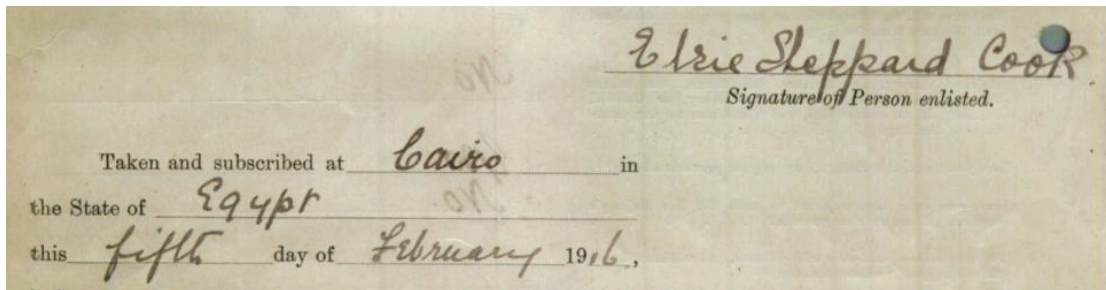 Elsie Sheppard Cook
Signature of Person enlisted.
Taken and subscribed at Cairo in
the State of Egypt
this fifth day of February 1916,